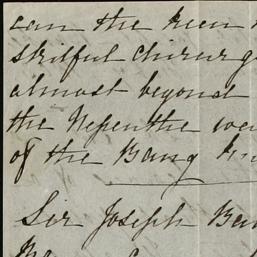 can the keen
skilful chirurg
almost beyond
the Nepenthe we
of the Bang kn
Sir Joseph Ban